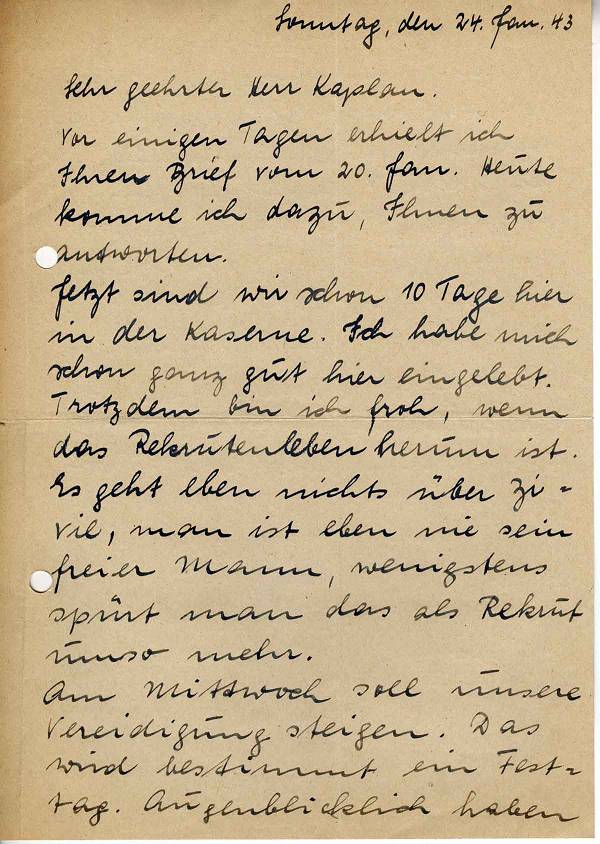 Sonntag, den 24. Jan. 43
Sehr geehrter Herr Kaplan.
Vor einigen Tagen erhielt ich
Ihren Brief vom 20. Jan. Heute
komme ich dazu, Ihnen zu
antworten.
Jetzt sind wir schon 10 Tage hier
in der Kaserne. Ich habe mich
schon ganz gut hier eingelebt.
Trotzdem bin ich froh, wenn
das Rekrutenleben herum ist.
Es geht eben nichts über Zi=
vil, man ist eben nie sein
freier Mann, wenigstens
spürt man das als Rekrut
umso mehr.
Am Mittwoch soll unsere
Vereidigung steigen. Das
wird bestimmt ein Fest=
tag. Augenblicklich haben